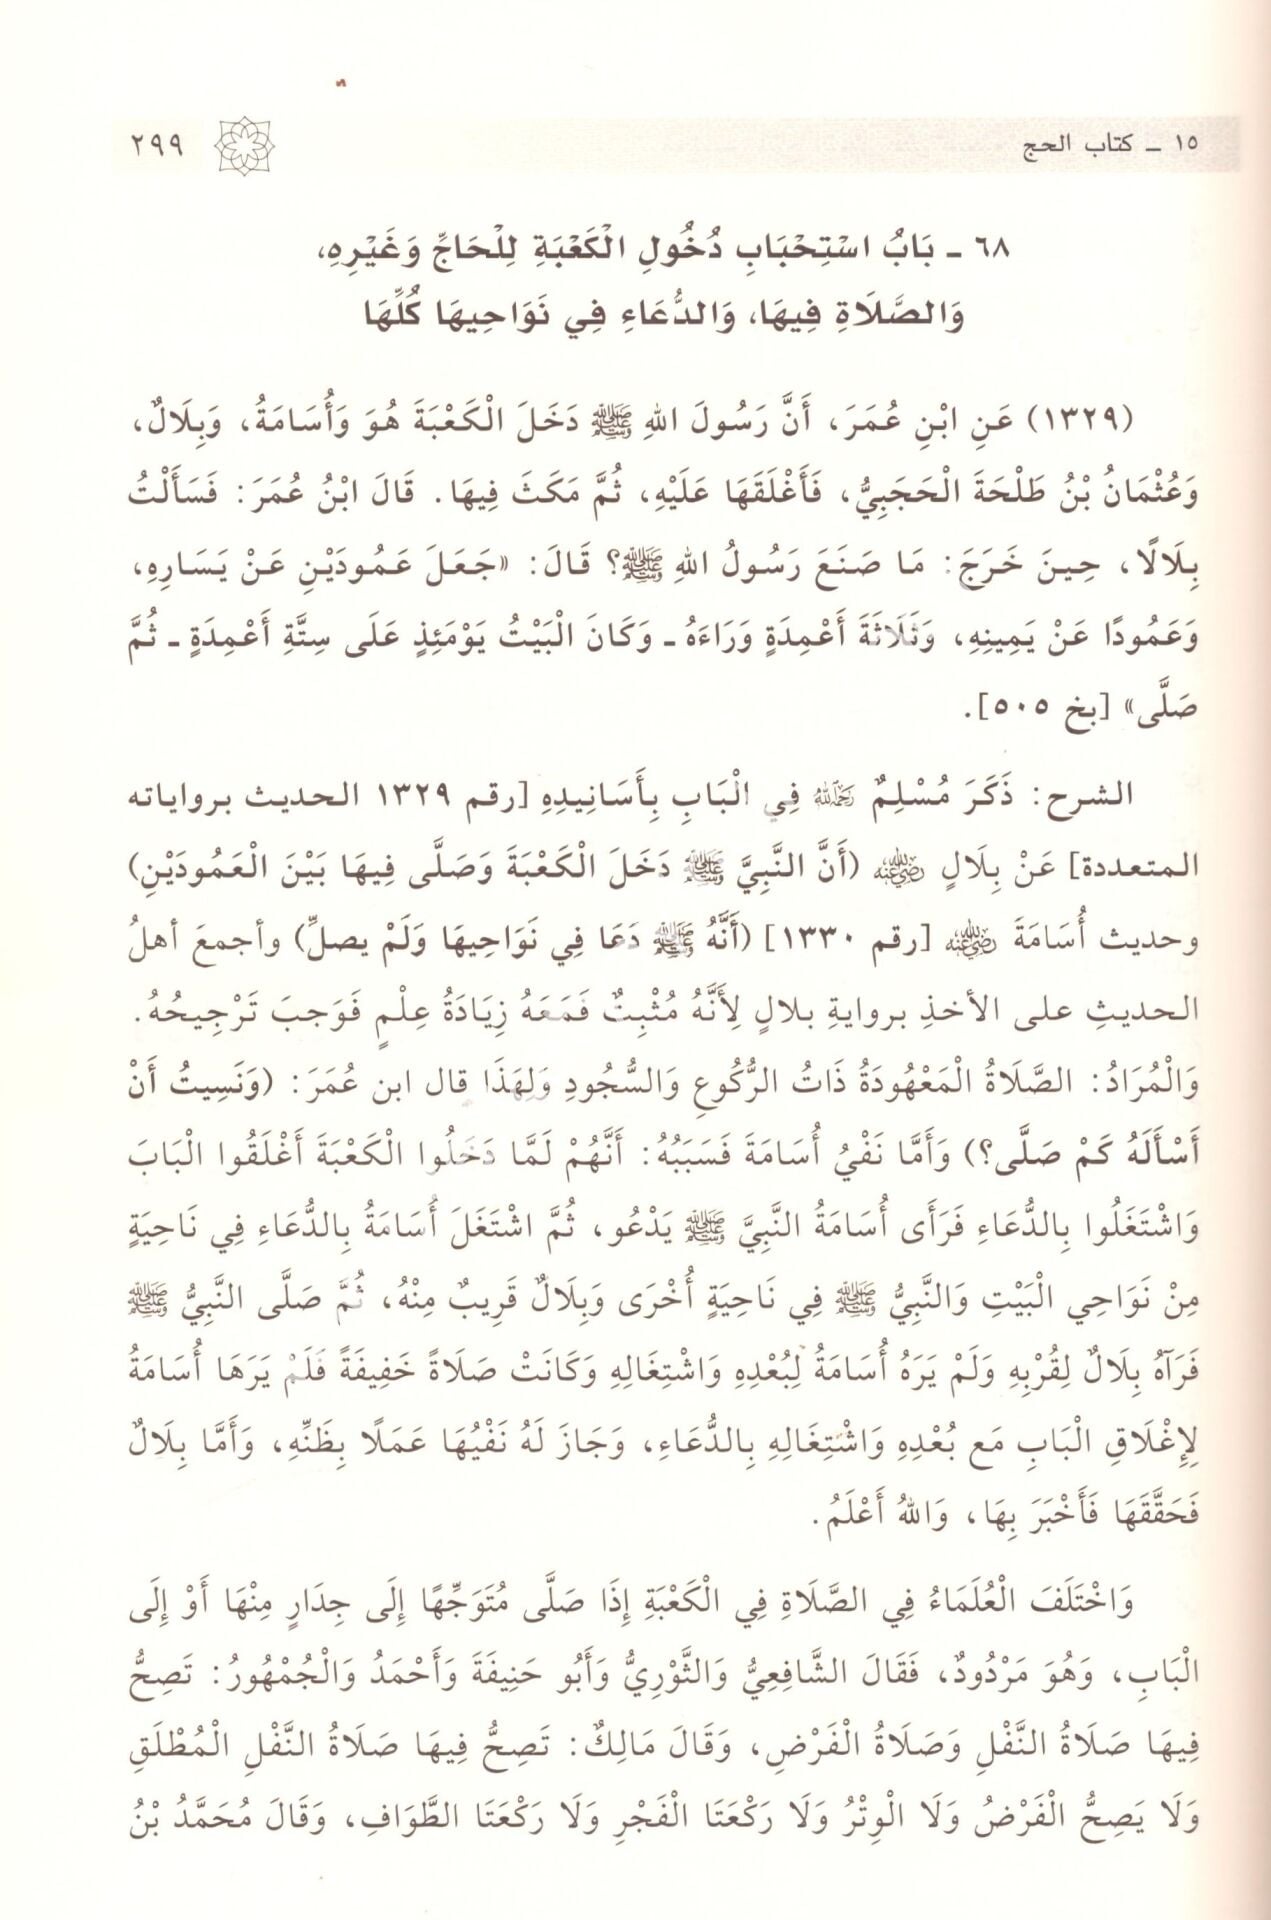 ١٥ ـ كتاب الحج ٢٩٩
٦٨ ـ بَابُ اسْتِحْبَابِ دُخُولِ الْكَعْبَةِ لِلْحَاجِّ وَغَيْرِهِ،
وَالصَّلَاةِ فِيهَا، وَالدُّعَاءِ فِي نَوَاحِيهَا كُلِّهَا
(١٣٢٩) عَنِ ابْنِ عُمَرَ، أَنَّ رَسُولَ اللهِ ﷺ دَخَلَ الْكَعْبَةَ هُوَ وَأُسَامَةُ، وَبِلَالٌ،
وَعُثْمَانُ بْنُ طَلْحَةَ الْحَجَبِيُّ، فَأَغْلَقَهَا عَلَيْهِ، ثُمَّ مَكَثَ فِيهَا. قَالَ ابْنُ عُمَرَ: فَسَأَلْتُ
بِلَالًا، حِينَ خَرَجَ: مَا صَنَعَ رَسُولُ اللهِ ﷺ؟ قَالَ: «جَعَلَ عَمُودَيْنِ عَنْ يَسَارِهِ،
وَعَمُودًا عَنْ يَمِينِهِ، وَثَلَاثَةَ أَعْمِدَةٍ وَرَاءَهُ ـ وَكَانَ الْبَيْتُ يَوْمَئِذٍ عَلَى سِتَّةِ أَعْمِدَةٍ ـ ثُمَّ
صَلَّى» [بخ ٥٠٥].
الشرح: ذَكَرَ مُسْلِمٌ رَحِمَهُ اللهُ فِي الْبَابِ بِأَسَانِيدِهِ [رقم ١٣٢٩ الحديث برواياته
المتعددة] عَنْ بِلَالٍ رَضِيَ اللهُ عَنْهُ (أَنَّ النَّبِيَّ ﷺ دَخَلَ الْكَعْبَةَ وَصَلَّى فِيهَا بَيْنَ الْعَمُودَيْنِ)
وحديث أُسَامَةَ رَضِيَ اللهُ عَنْهُ [رقم ١٣٣٠] (أَنَّهُ ﷺ دَعَا فِي نَوَاحِيهَا وَلَمْ يصلِّ) وأجمعَ أهلُ
الحديثِ على الأخذِ بروايةِ بلالٍ لِأَنَّهُ مُثْبِتٌ فَمَعَهُ زِيَادَةُ عِلْمٍ فَوَجَبَ تَرْجِيحُهُ.
وَالْمُرَادُ: الصَّلَاةُ الْمَعْهُودَةُ ذَاتُ الرُّكُوعِ وَالسُّجُودِ وَلِهَذَا قال ابن عُمَرَ: (وَنَسِيتُ أَنْ
أَسْأَلَهُ كَمْ صَلَّى؟) وَأَمَّا نَفْيُ أُسَامَةَ فَسَبَبُهُ: أَنَّهُمْ لَمَّا دَخَلُوا الْكَعْبَةَ أَغْلَقُوا الْبَابَ
وَاشْتَغَلُوا بِالدُّعَاءِ فَرَأَى أُسَامَةُ النَّبِيَّ ﷺ يَدْعُو، ثُمَّ اشْتَغَلَ أُسَامَةُ بِالدُّعَاءِ فِي نَاحِيَةٍ
مِنْ نَوَاحِي الْبَيْتِ وَالنَّبِيُّ ﷺ فِي نَاحِيَةٍ أُخْرَى وَبِلَالٌ قَرِيبٌ مِنْهُ، ثُمَّ صَلَّى النَّبِيُّ ﷺ
فَرَآهُ بِلَالٌ لِقُرْبِهِ وَلَمْ يَرَهُ أُسَامَةُ لِبُعْدِهِ وَاشْتِغَالِهِ وَكَانَتْ صَلَاةً خَفِيفَةً فَلَمْ يَرَهَا أُسَامَةُ
لِإِغْلَاقِ الْبَابِ مَع بُعْدِهِ وَاشْتِغَالِهِ بِالدُّعَاءِ، وَجَازَ لَهُ نَفْيُهَا عَمَلًا بِظَنِّهِ، وَأَمَّا بِلَالٌ
فَحَقَّقَهَا فَأَخْبَرَ بِهَا، وَاللهُ أَعْلَمُ.
وَاخْتَلَفَ الْعُلَمَاءُ فِي الصَّلَاةِ فِي الْكَعْبَةِ إِذَا صَلَّى مُتَوَجِّهًا إِلَى جِدَارٍ مِنْهَا أَوْ إِلَى
الْبَابِ، وَهُوَ مَرْدُودٌ، فَقَالَ الشَّافِعِيُّ وَالثَّوْرِيُّ وَأَبُو حَنِيفَةَ وَأَحْمَدُ وَالْجُمْهُورُ: تَصِحُّ
فِيهَا صَلَاةُ النَّفْلِ وَصَلَاةُ الْفَرْضِ، وَقَالَ مَالِكٌ: تَصِحُّ فِيهَا صَلَاةُ النَّفْلِ الْمُطْلَقِ
وَلَا يَصِحُّ الْفَرْضُ وَلَا الْوِتْرُ وَلَا رَكْعَتَا الْفَجْرِ وَلَا رَكْعَتَا الطَّوَافِ، وَقَالَ مُحَمَّدُ بْنُ